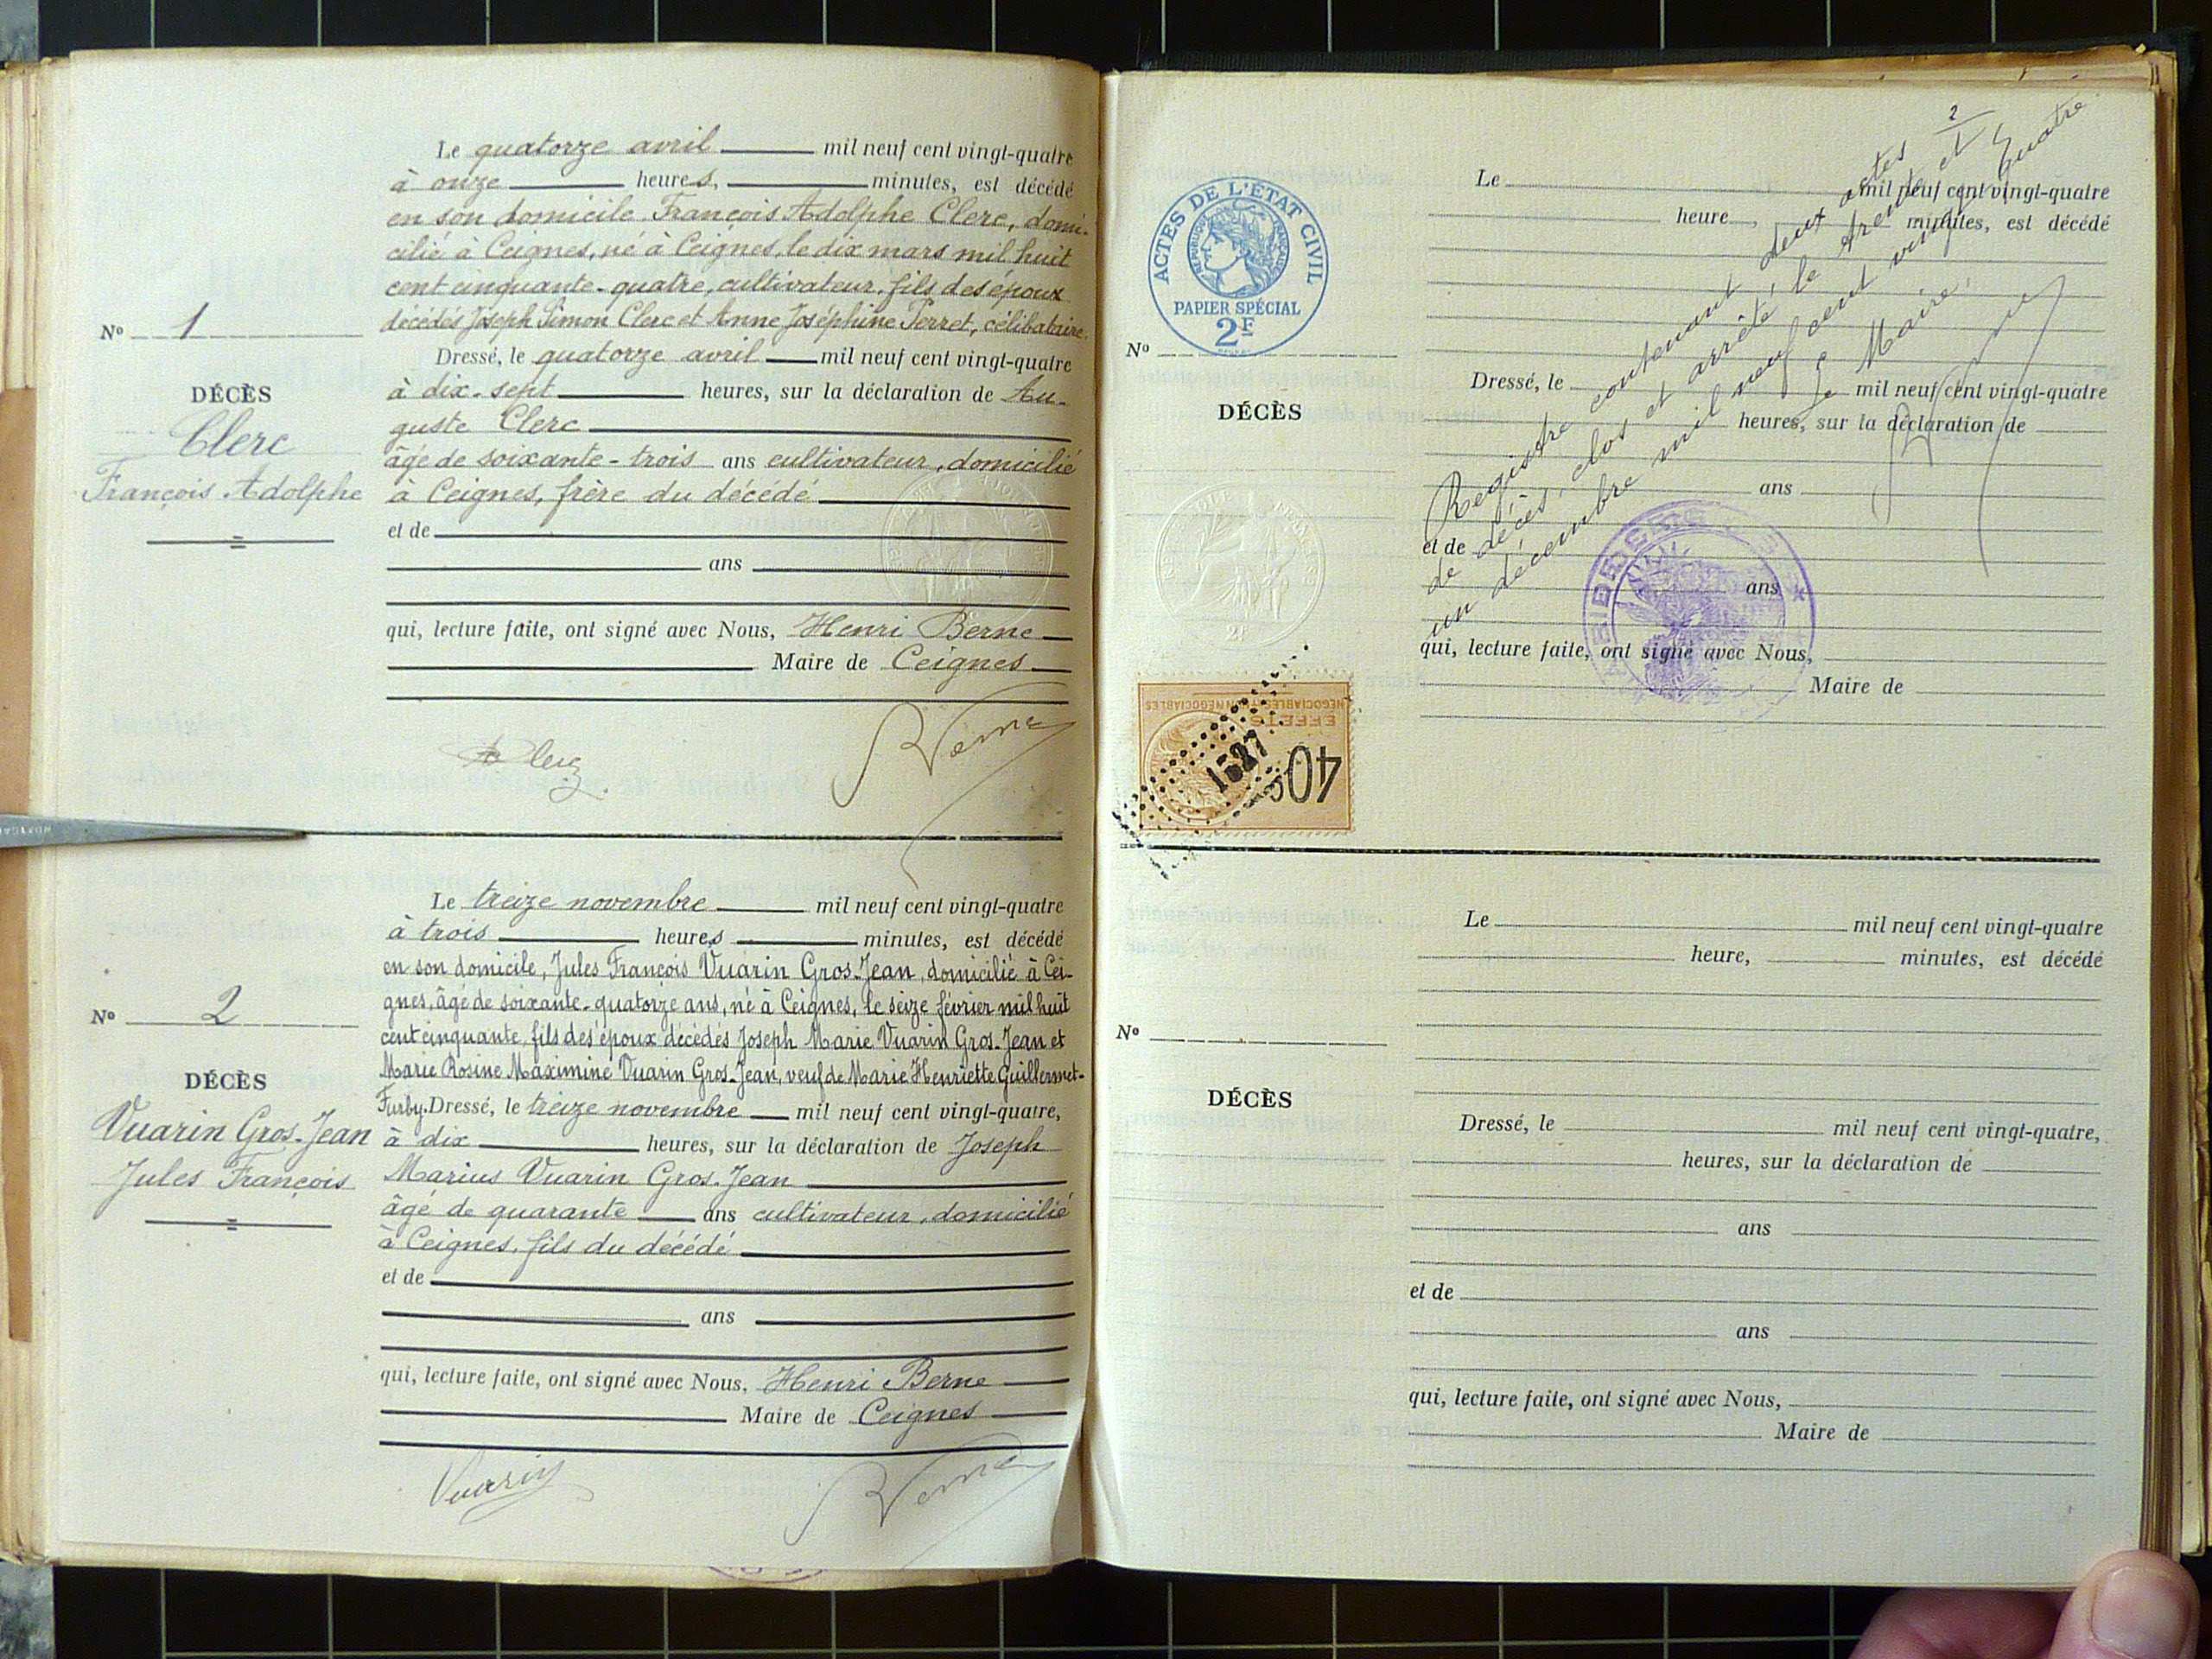 Le quatorze avril mil neuf cent vingt-quatre
à onze heures, minutes, est décédé
en son domicile François Adolphe Clerc, domi-
cilié à Ceignes, né à Ceignes, le dix mars mil huit
cent cinquante-quatre, cultivateur, fils des époux
décédés Joseph Simon Clerc et Anne Joséphine Perret, célibataire.
Nº 1
DÉCÈS
Clerc
François Adolphe
Dressé, le quatorze avril mil neuf cent vingt-quatre
à dix-sept heures, sur la déclaration de Au-
guste Clerc
âgé de soixante-trois ans cultivateur, domicilié
à Ceignes, frère du décédé
et de
ans
qui, lecture faite, ont signé avec Nous, Henri Berne
Maire de Ceignes
Clerc
Berne
Le treize novembre mil neuf cent vingt-quatre
à trois heures minutes, est décédé
en son domicile, Jules François Vuarin Gros-Jean, domicilié à Cei-
gnes, âgé de soixante-quatorze ans, né à Ceignes, le seize février mil huit
cent cinquante, fils des époux décédés Joseph Marie Vuarin Gros-Jean et
Marie Rosine Maximine Vuarin Gros-Jean, veuf de Marie Henriette Guillermet-
Furby. Dressé, le treize novembre mil neuf cent vingt-quatre,
Nº 2
DÉCÈS
Vuarin Gros-Jean
Jules François
à dix heures, sur la déclaration de Joseph
Marius Vuarin Gros-Jean
âgé de quarante ans cultivateur, domicilié
à Ceignes, fils du décédé
et de
ans
qui, lecture faite, ont signé avec Nous, Henri Berne
Maire de Ceignes
Vuarin
Berne
ACTES DE L'ÉTAT CIVIL
RÉPUBLIQUE FRANÇAISE
PAPIER SPÉCIAL
2F
Nº
DÉCÈS
2F
EFFETS
NÉGOCIABLES NON NÉGOCIABLES
40c
1527
Le mil neuf cent vingt-quatre
heure, minutes, est décédé
Dressé, le mil neuf cent vingt-quatre
heures, sur la déclaration de
ans
et de
ans
qui, lecture faite, ont signé avec Nous,
Maire de
2
Registre contenant deux actes
de décès, clos et arrêté, le trente et
un décembre mil neuf cent vingt quatre
Le Maire,
Le mil neuf cent vingt-quatre
heure, minutes, est décédé
Nº
DÉCÈS
Dressé, le mil neuf cent vingt-quatre,
heures, sur la déclaration de
ans
et de
ans
qui, lecture faite, ont signé avec Nous,
Maire de